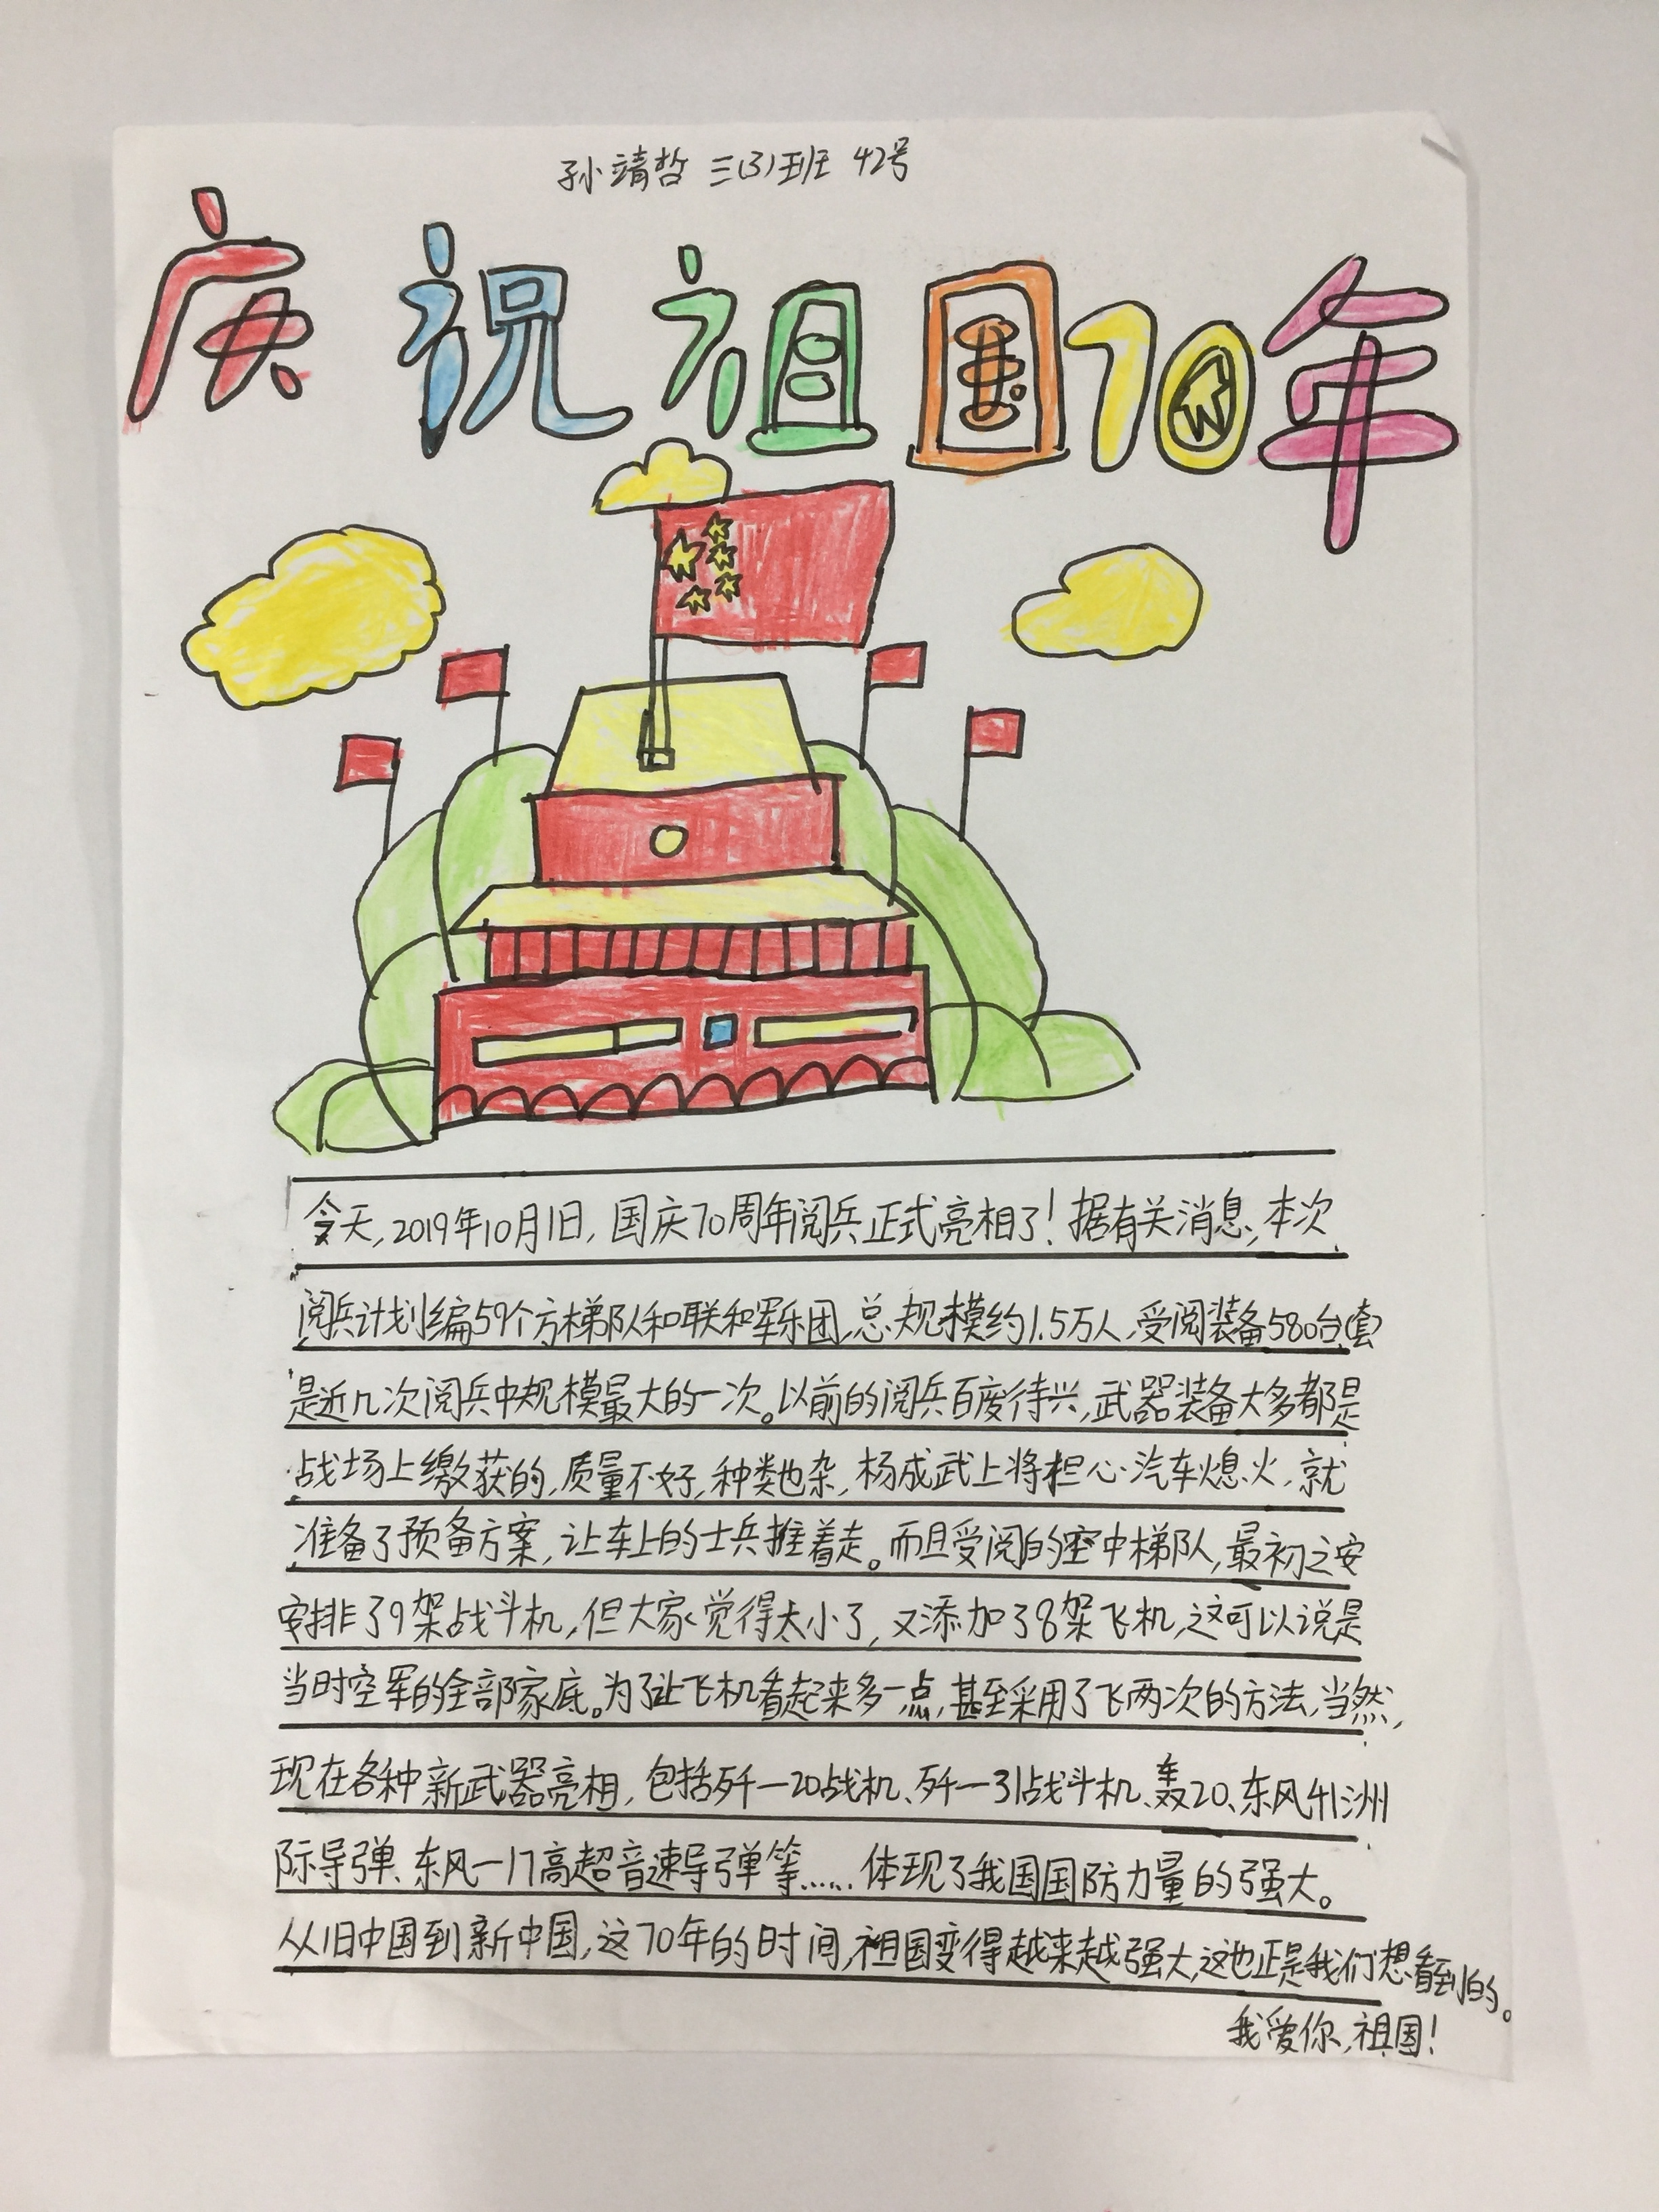 孙靖哲 三(3)班 42号
庆祝祖国70年
今天,2019年10月1日,国庆70周年阅兵正式亮相了!据有关消息,本次
阅兵计划编59个方梯队和联和军乐团,总规模约1.5万人,受阅装备580台(套)
是近几次阅兵中规模最大的一次。以前的阅兵百废待兴,武器装备大多都是
战场上缴获的,质量不好,种类也杂,杨成武上将担心汽车熄火,就
准备了预备方案,让车上的士兵推着走。而且受阅的空中梯队,最初之安
安排了9架战斗机,但大家觉得太小了,又添加了8架飞机,这可以说是
当时空军的全部家底。为了让飞机看起来多一点,甚至采用了飞两次的方法,当然,
现在各种新武器亮相,包括歼—20战机、歼—31战斗机、轰20、东风41洲
际导弹、东风—17高超音速导弹等……体现了我国国防力量的强大。
从旧中国到新中国,这70年的时间,祖国变得越来越强大,这也正是我们想看到的。
我爱你,祖国!